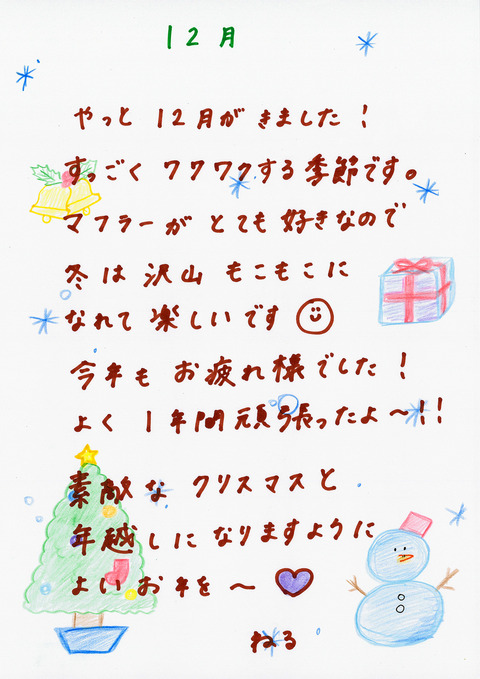 12月
やっと 12月が きました!
すっごく ワクワクする 季節です。
マフラーが とても 好きなので
冬は 沢山 もこもこに
なれて 楽しいです
今年も お疲れ様でした!
よく 1年間頑張ったよ〜!!
素敵な クリスマスと
年越しに なりますように
よい お年を 〜
ねる